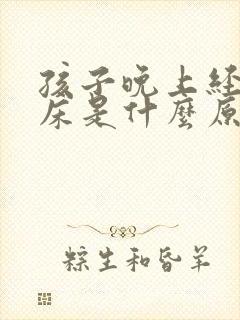 孩子晚上经
床是什麼原
粽生和昏羊